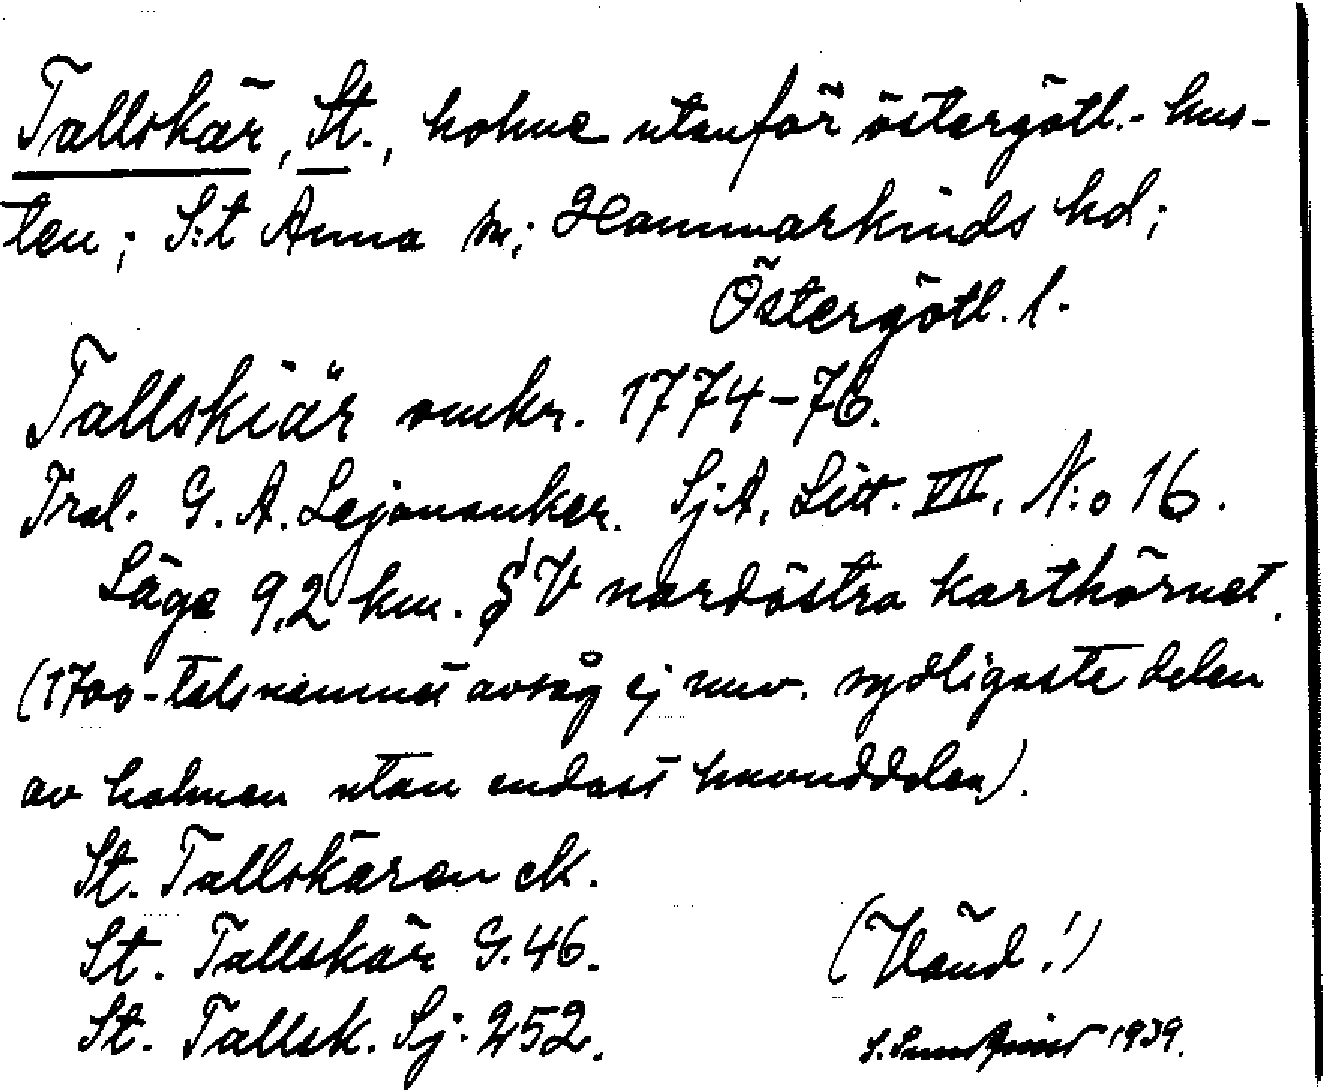 Tallskär, St., holme utanför östergötl.- kus-
ten; S:t Anna sn; Hammarkinds hd;
Östergötl. l.
Tallskiär omkr. 1774-76.
G. A. Lejonanker. SjA, Litt. VII, N:o 16.
Läge 9,2 km. V nordöstra karthörnet.
(1700-talsnamnet avsåg ej nuv. sydligaste delen
av holmen utan endast huvuddelen).
St. Tallskären ek.
St. Tallskär G. 46.
(Vänd!)
St. Tallsk. Sj. 252.
1939.